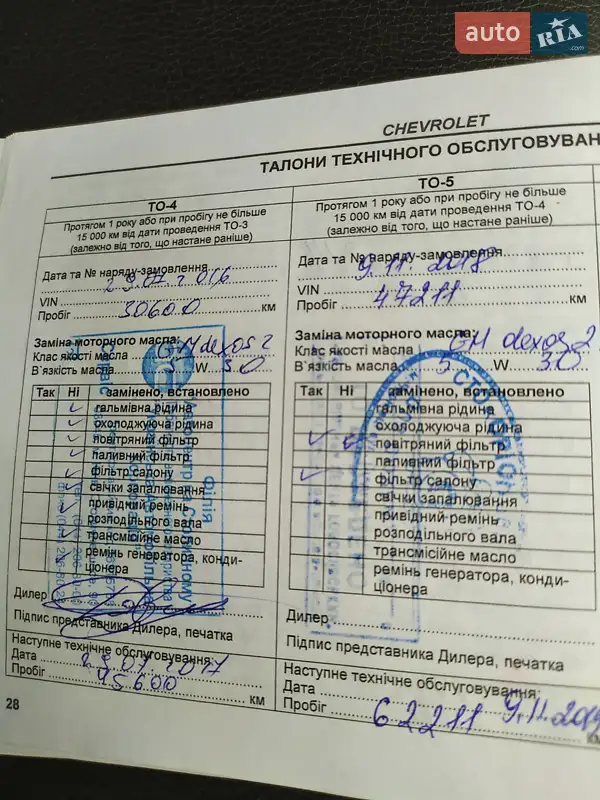 auto RIA.com
CHEVROLET
ТАЛОНИ ТЕХНІЧНОГО ОБСЛУГОВУВАН
ТО-4
Протягом 1 року або при пробігу не більше
15 000 км від дати проведення ТО-3
(залежно від того, що настане раніше)
Дата та № наряду-замовлення
29.07.2016
VIN
Пробіг 30600 км
Заміна моторного масла:
Клас якості масла GM dexos 2
В`язкість масла 5 W 30
Так Ні замінено, встановлено
гальмівна рідина
охолоджуюча рідина
повітряний фільтр
паливний фільтр
фільтр салону
свічки запалювання
привідний ремінь
розподільного вала
трансмісійне масло
ремінь генератора, конди-
ціонера
Дилер
Підпис представника Дилера, печатка
Наступне технічне обслуговування:
Дата 29.07.2017
Пробіг 45600 км
28
ТО-5
Протягом 1 року або при пробігу не більше
15 000 км від дати проведення ТО-4
(залежно від того, що настане раніше)
Дата та № наряду-замовлення
9.11.2018
VIN
Пробіг 47211 км
Заміна моторного масла:
Клас якості масла GM dexos 2
В`язкість масла 5 W 30
Так Ні замінено, встановлено
гальмівна рідина
охолоджуюча рідина
повітряний фільтр
паливний фільтр
фільтр салону
свічки запалювання
привідний ремінь
розподільного вала
трансмісійне масло
ремінь генератора, конди-
ціонера
Дилер
Підпис представника Дилера, печатка
Наступне технічне обслуговування:
Дата 9.11.2019
Пробіг 62211 км
філія